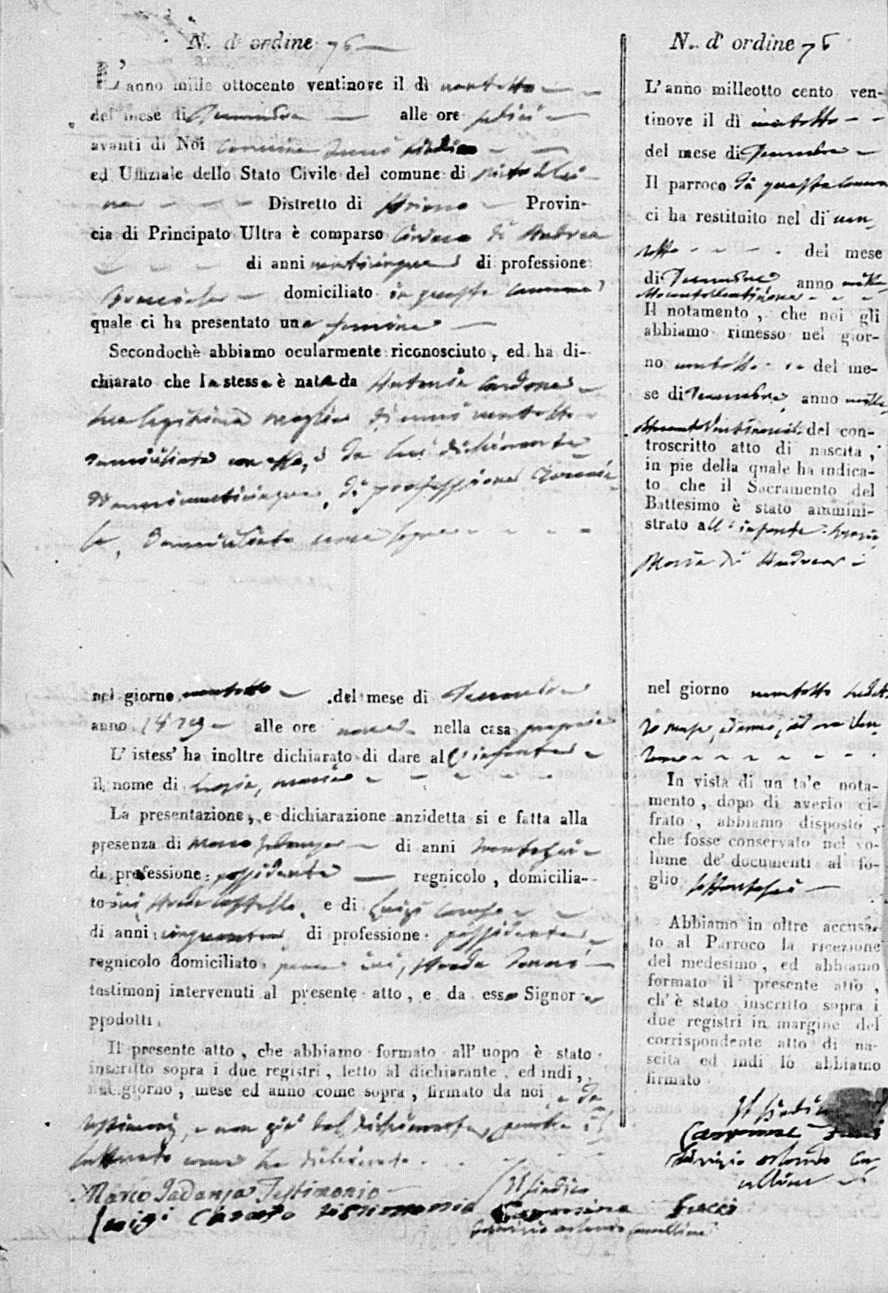 N. d' ordine 76
L' anno mille ottocento ventinove il dì ventotto
del mese di Decembre alle ore sedici
avanti di Noi Carmine Fucci Sindaco
ed Uffiziale dello Stato Civile del comune di
Distretto di Ariano Provin-
cia di Principato Ultra è comparso di Andrea
di anni venticinque di professione
domiciliato in questo comune
quale ci ha presentato una femina
Secondochè abbiamo ocularmente riconosciuto, ed ha di-
chiarato che la stessa è nata da Antonia Cardone
sua legitima moglie di anni ventotto
domiciliata con esso, e da lui dichiarante
di anni venticinque, di professione
domiciliato come sopra
nel giorno ventotto del mese di Decembre
anno 1829 alle ore nove nella casa propria
L' istess' ha inoltre dichiarato di dare all' infante
il nome di Maria
La presentazione, e dichiarazione anzidetta si e fatta alla
presenza di Marco Iadanza di anni
di professione possidente regnicolo, domicilia-
to ivi, strada Castello, e di Luigi Caruso
di anni cinquanta di professione possidente
regnicolo domiciliato pure ivi, strada
testimonj intervenuti al presente atto, e da esso Signor
prodotti.
Il presente atto, che abbiamo formato all' uopo è stato
inscritto sopra i due registri, letto al dichiarante, ed indi,
nel giorno, mese ed anno come sopra, firmato da noi e da
testimonj, e non già dal dichiarante, perchè il-
letterato come ha dichiarato.
Marco Iadanza Testimonio
Luigi Caruso testimonio
Il Sindaco
Carmine Fucci
Fabrizio Orlando Cancelliere
N. d' ordine 76
L' anno milleotto cento ven-
tinove il dì ventotto
del mese di Decembre
Il parroco di questo comune
ci ha restituito nel dì ven-
totto del mese
di Decembre anno mille
ottocentoventinove
Il notamento, che noi gli
abbiamo rimesso nel gior-
no ventotto del me-
se di Decembre anno mille
ottocentoventinove del con-
troscritto atto di nascita,
in pie della quale ha indica-
to che il Sacramento del
Battesimo è stato ammini-
strato all' infante
Maria di Andrea
nel giorno ventotto
to mese, ed anno
In vista di un tale nota-
mento, dopo di averlo ci-
frato, abbiamo disposto,
che fosse conservato nel vo-
lume de' documenti al fo-
glio settantasei
Abbiamo in oltre accusa-
to al Parroco la ricezione
del medesimo, ed abbiamo
formato il presente atto,
ch' è stato inscritto sopra i
due registri in margine del
corrispondente atto di na-
scita ed indi lo abbiamo
firmato
Il Sindaco
Carmine Fucci
Fabrizio Orlando Can-
celliere